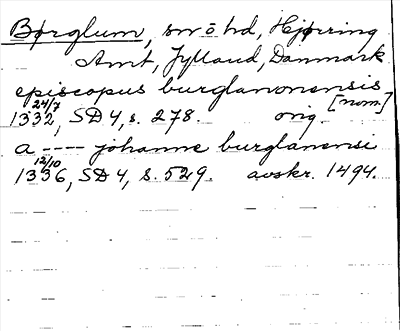 Børglum, sn o hd, Hjørring
Amt, Jylland, Danmark
episcopus burglanonensis
[nom]
1332 24/7, SD 4, s. 278. orig.
a ---- johanne burglanensi
1336 12/10, SD 4, s. 529. avskr. 1494.